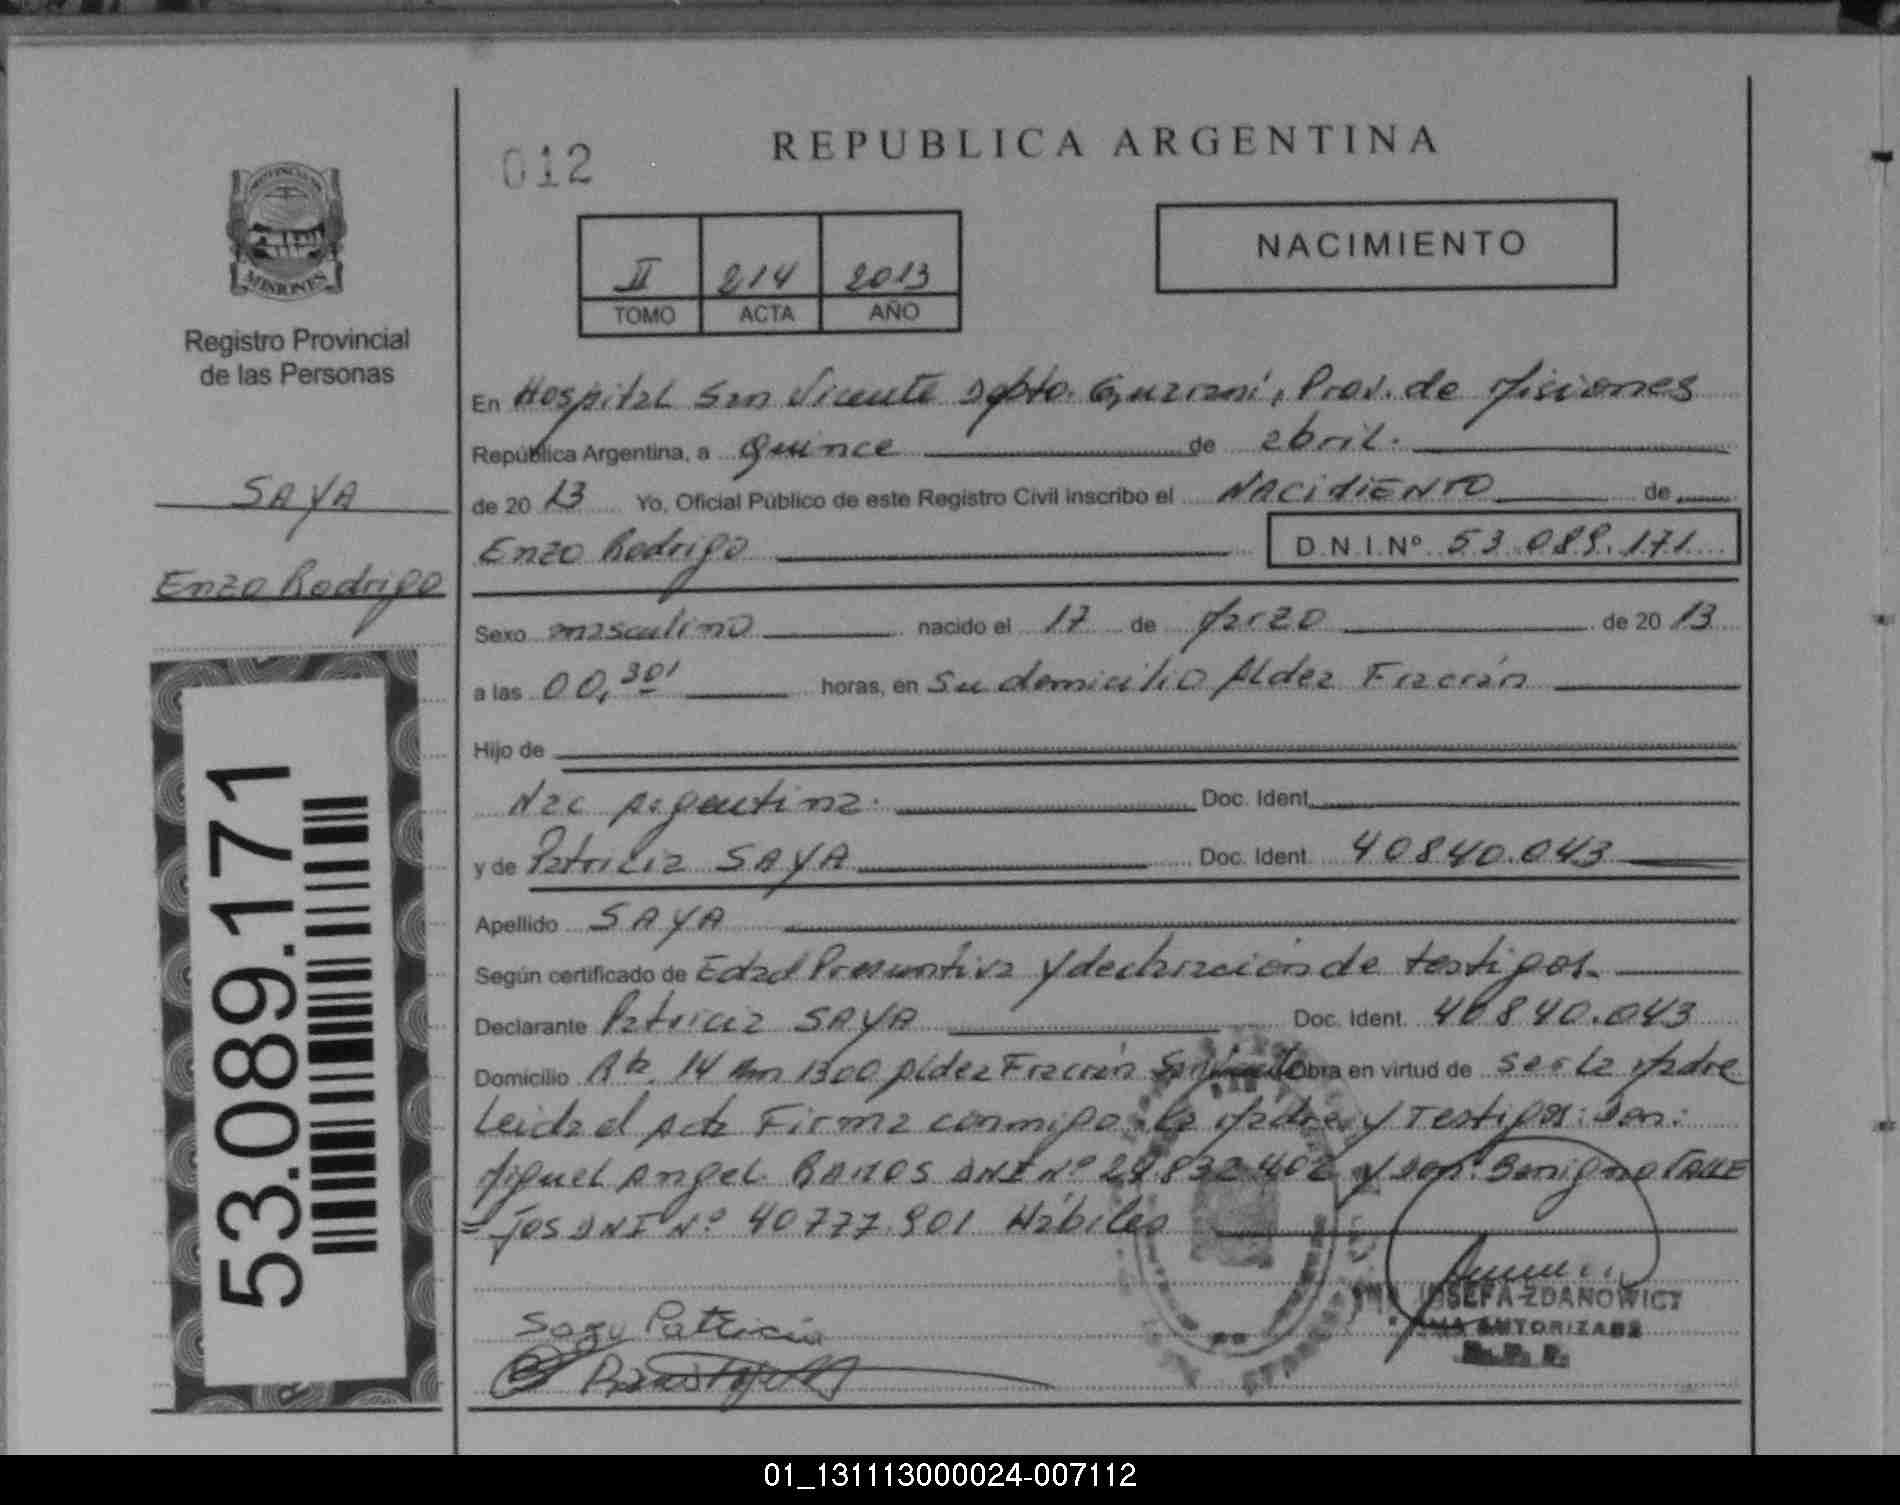 012
REPUBLICA ARGENTINA
NACIMIENTO
II 214 2013
TOMO ACTA AÑO
MISIONES
Registro Provincial
de las Personas
SAYA
Enzo Rodrigo
53.089.171
En Hospital San Vicente Dpto. Guaraní, Prov. de Misiones
República Argentina, a quince de abril.
de 20 13 Yo, Oficial Público de este Registro Civil inscribo el NACIMIENTO de
Enzo Rodrigo D.N.I.Nº 53.089.171
Sexo masculino nacido el 17 de Marzo de 20 13
a las 00,30' horas, en Su domicilio Aldea Fracrán
Hijo de
Nac Argentina. Doc. Ident.
y de Patricia SAYA Doc. Ident. 40840.043
Apellido SAYA
Según certificado de Edad Presuntiva y declaración de testigos.
Declarante Patricia SAYA Doc. Ident. 40840.043
Domicilio Rta. 14 Km 1300 Aldea Fracrán San Vicente Obra en virtud de ser la Madre
Leida el Acta Firma conmigo la Madre y Testigos: Don:
Miguel Angel RAMOS DNI Nº 28.832.402 y Don: Benigno CALLE
=jos DNI Nº 40777.901 Hábiles
Saya Patricia
JOSEFA ZDANOWICZ
AUTORIZADA
R.P.P.
01_131113000024-007112